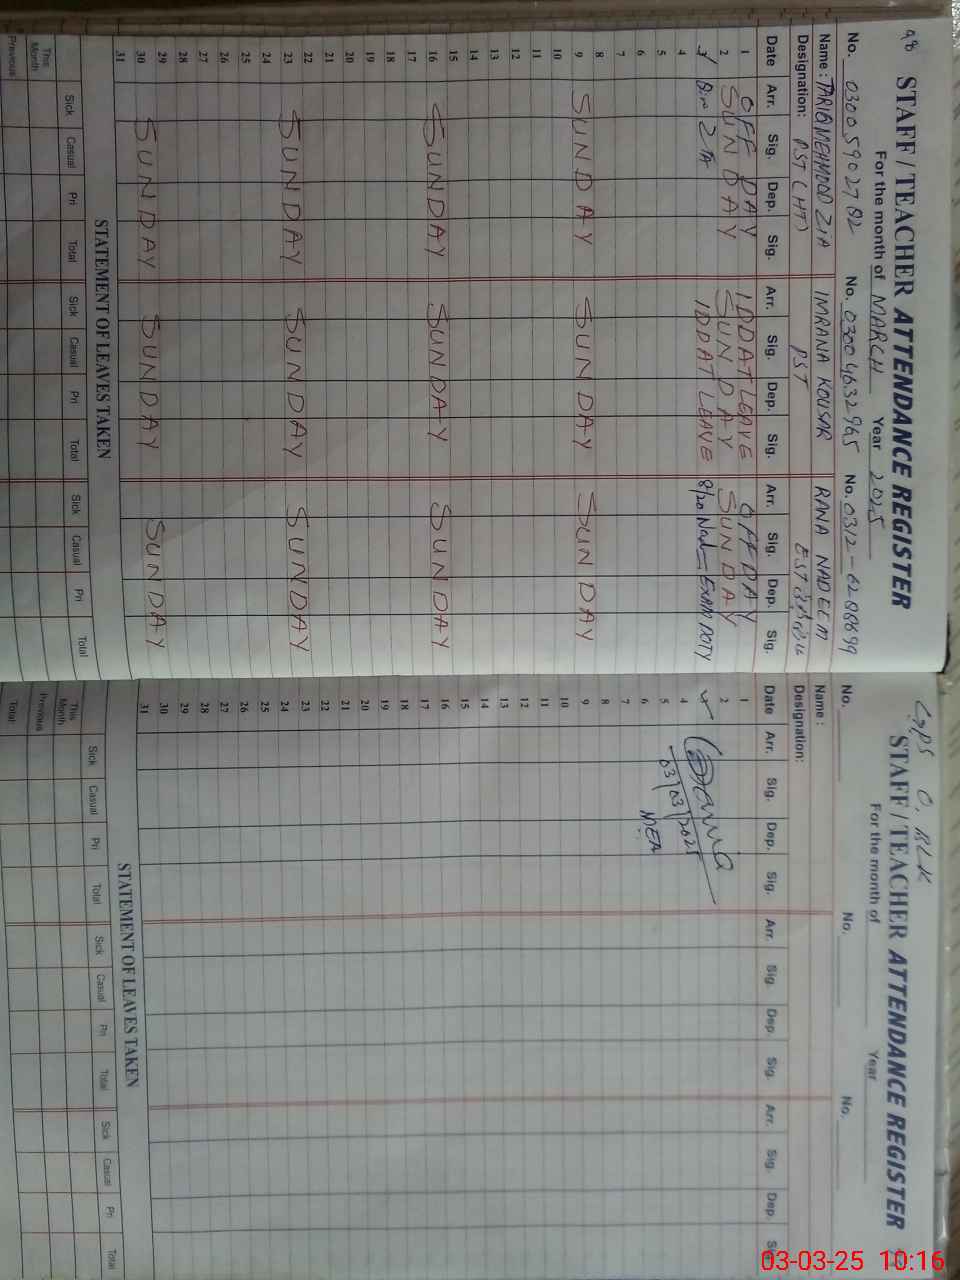 98 STAFF / TEACHER ATTENDANCE REGISTER
For the month of MARCH Year 2025
No. 0300 5902782 No. 0300 4632965 No. 0312-6288899
Name : TARIQ MEHMOOD ZIA IMRANA KOUSAR RANA NADEEM
Designation: PST (HT) PST EST
Date Arr. Sig. Dep. Sig. Arr. Sig. Dep. Sig. Arr. Sig. Dep. Sig.
1 OFF DAY IDDAT LEAVE OFF DAY
2 SUNDAY SUNDAY SUNDAY
3 IDDAT LEAVE 8/20 EXAM DUTY
4
5
6
7
8
9 SUNDAY SUNDAY SUNDAY
10
11
12
13
14
15
16 SUNDAY SUNDAY SUNDAY
17
18
19
20
21
22
23 SUNDAY SUNDAY SUNDAY
24
25
26
27
28
29
30 SUNDAY SUNDAY SUNDAY
31
STATEMENT OF LEAVES TAKEN
Sick Casual Pri Total Sick Casual Pri Total Sick Casual Pri Total
This Month
Previous
GPS O. BLK
STAFF / TEACHER ATTENDANCE REGISTER
For the month of Year
No. No. No.
Name :
Designation:
Date Arr. Sig. Dep. Sig. Arr. Sig. Dep. Sig. Arr. Sig. Dep.
1
2
4
5 03/03/2025
6 MEA
7
8
9
10
11
12
13
14
15
16
17
18
19
20
21
22
23
24
25
26
27
28
29
30
31
STATEMENT OF LEAVES TAKEN
Sick Casual Pri Total Sick Casual Pri Total Sick Casual Pri Total
This Month
Previous
Total
03-03-25 10:16